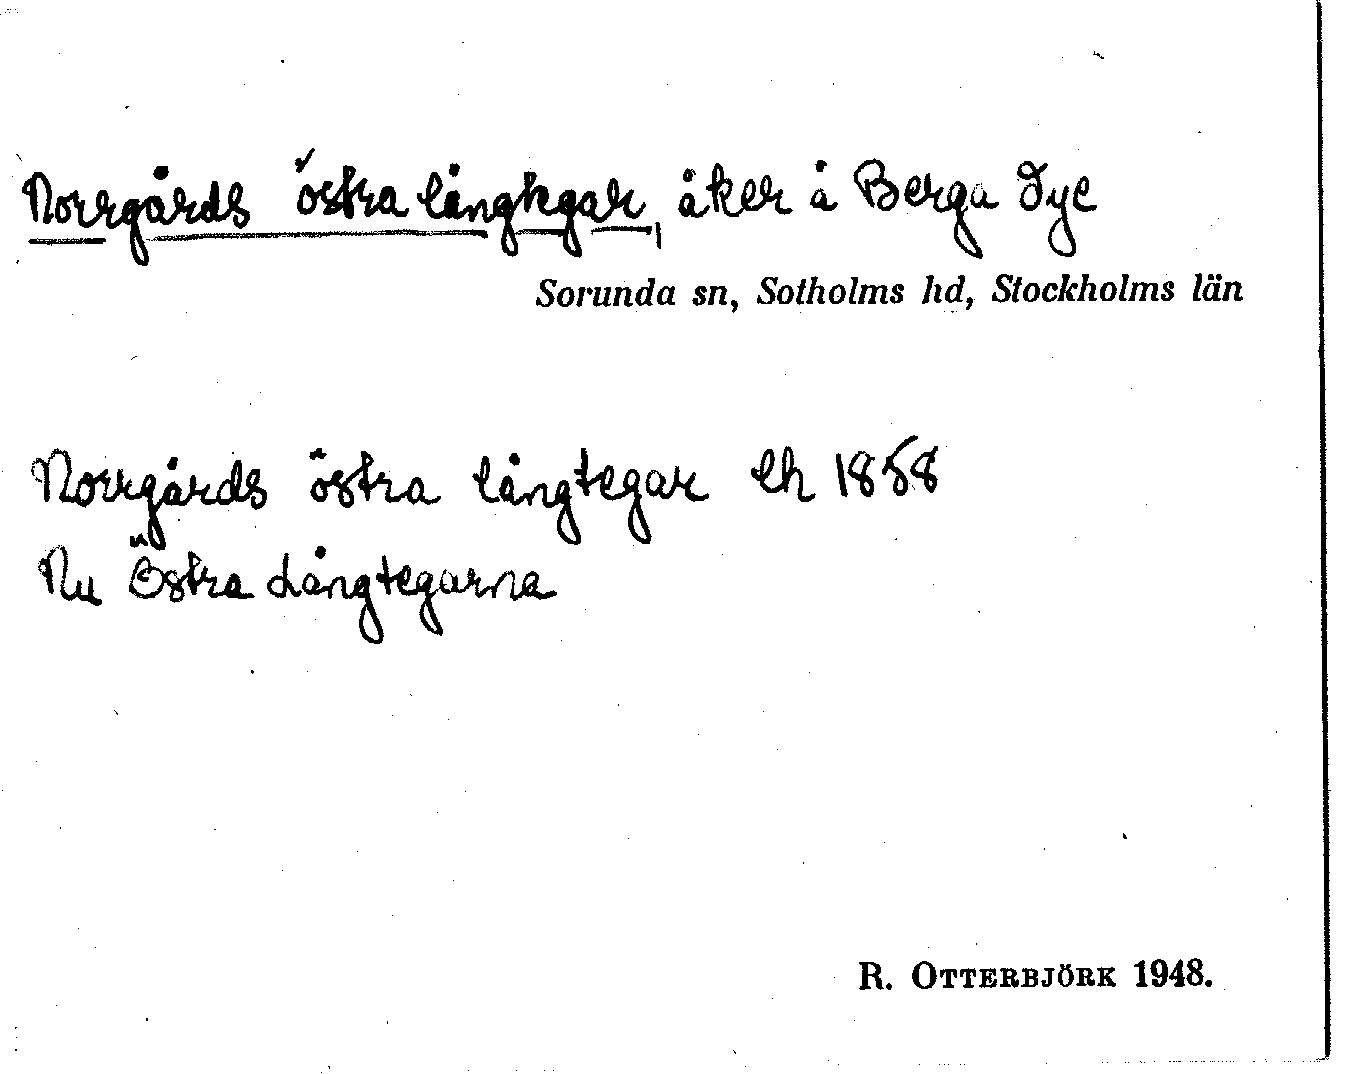 Norrgårds östra långtegar, åker å Berga Dye
Sorunda sn, Sotholms hd, Stockholms län
Norrgårds östra långtegar lh 1858
Nu Östra Långtegarna
R. OTTERBJÖRK 1948.